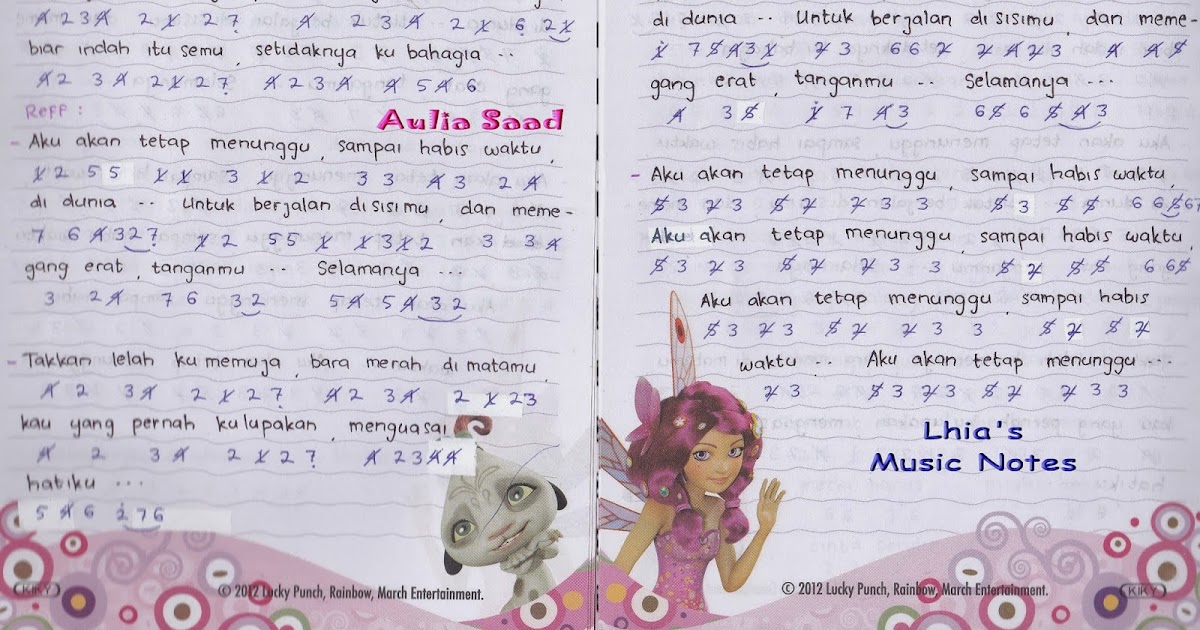 4̸ 2 3 4̸ 2 1̸ 2 7̣ 4̸ 2 3 4̸ 2 1̸ 6̣ 2 1̸
biar indah itu semu, setidaknya ku bahagia ..
4̸ 2 3 4̸ 2 1̸ 2 7̣ 4̸ 2 3 4̸ 4̸ 5 4̸ 6
Reff :
Aulia Saad
- Aku akan tetap menunggu, sampai habis waktu,
1̸ 2 5 5 1̸ 1̸ 3 1̸ 2 3 3 4̸ 3 2 4̸
di dunia .. Untuk berjalan di sisimu, dan meme-
7 6 4̸ 3 2 7̣ 1̸ 2 5 5 1̸ 1̸ 3 1̸ 2 3 3 4̸
gang erat, tanganmu .. Selamanya ...
3 2 4̸ 7 6 3 2 5 4̸ 5 4̸ 3 2
- Takkan lelah ku memuja, bara merah di matamu,
4̸ 2 3 4̸ 2 1̸ 2 7̣ 4̸ 2 3 4̸ 2 1̸ 2 3
kau yang pernah kulupakan, menguasai
4̸ 2 3 4̸ 2 1̸ 2 7̣ 4̸ 2 3 4̸ 4̸
hatiku ...
5 4̸ 6 2̇ 7 6
KIKY
© 2012 Lucky Punch, Rainbow, March Entertainment.
di dunia .. Untuk berjalan di sisimu, dan meme-
1̸̇ 7 5̸ 4̸ 3 1̸ 2̸ 3 6 6 2̸ 2̸ 4̸ 2̸ 3 4̸ 4̸ 5̸
gang erat, tanganmu .. Selamanya ...
4̸ 3 5̸ 1̸̇ 7 4̸ 3 6 5̸ 6 5̸ 4̸ 3
- Aku akan tetap menunggu, sampai habis waktu,
5̸ 3 2̸ 3 5̸ 2̸ 2̸ 3 3 5̸ 3 5̸ 5̸ 6 6 5̸ 6 7
Aku akan tetap menunggu, sampai habis waktu,
5̸ 3 2̸ 3 5̸ 2̸ 2̸ 3 3 5̸ 2̸ 5̸ 5̸ 6 6 5̸
Aku akan tetap menunggu, sampai habis
5̸ 3 2̸ 3 5̸ 2̸ 2̸ 3 3 5̸ 2̸ 5̸ 2̸
waktu .. Aku akan tetap menunggu ...
2̸ 3 5̸ 3 2̸ 3 5̸ 2̸ 2̸ 3 3
Lhia's
Music Notes
© 2012 Lucky Punch, Rainbow, March Entertainment.
KIKY